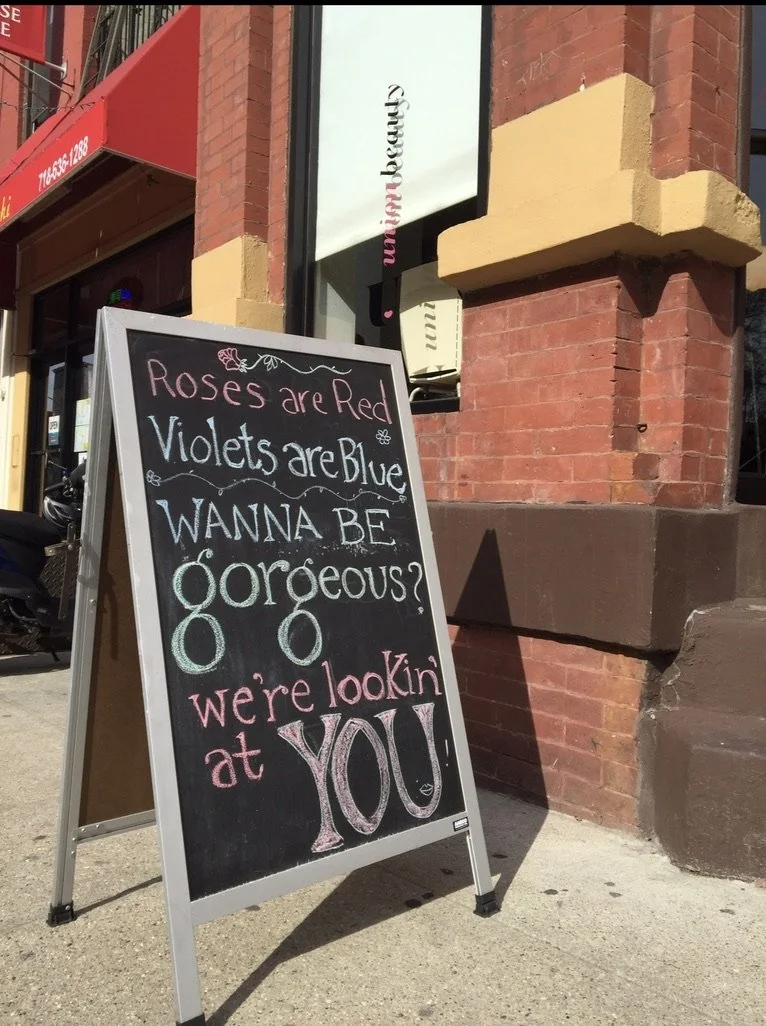 SE
E
718-636-1288
ki
unionbeauty
uni
OPEN
Roses are Red
Violets are Blue
WANNA BE
gorgeous?
we're lookin'
at YOU!